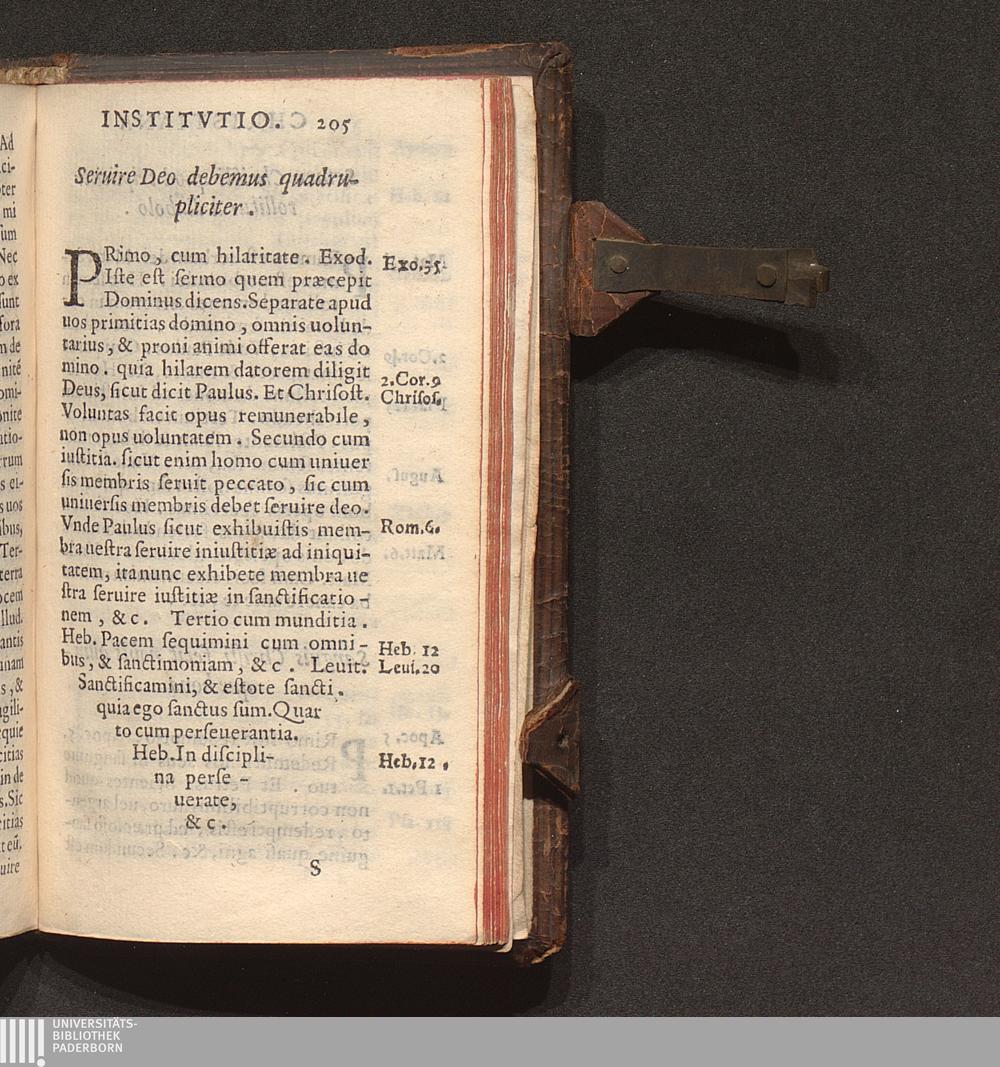 INSTITVTIO. 205
Seruire Deo debemus quadru-
pliciter.
PRimo, cum hilaritate. Exod.
Exo.35.
Iste est sermo quem præcepit
Dominus dicens. Separate apud
uos primitias domino, omnis uolun-
tarius, & proni animi offerat eas do
mino. quia hilarem datorem diligit
2.Cor.9
Deus, sicut dicit Paulus. Et Chrisost.
Chrisos.
Voluntas facit opus remunerabile,
non opus uoluntatem. Secundo cum
iustitia. sicut enim homo cum uniuer
sis membris seruit peccato, sic cum
uniuersis membris debet seruire deo.
Vnde Paulus sicut exhibuistis mem-
Rom.6.
bra uestra seruire iniustitiæ ad iniqui-
tatem, ita nunc exhibete membra ue
stra seruire iustitiæ in sanctificatio-
nem, &c. Tertio cum munditia.
Heb. Pacem sequimini cum omni-
Heb. 12
bus, & sanctimoniam, &c. Leuit.
Leui.20
Sanctificamini, & estote sancti.
quia ego sanctus sum. Quar
to cum perseuerantia.
Heb. In discipli-
Heb.12.
na perse-
uerate,
&c.
S
Ad
ci-
ter
mi
sum
Nec
o ex
sunt
fora
m de
nité
omi-
onite
tio-
rum
s ei-
s uos
ibus,
Ter-
terra
ocem
llud.
antis
unam
s, &
gili-
quie
citias
in de
s. Sic
citias
t eū.
uire
UNIVERSITÄTS-
BIBLIOTHEK
PADERBORN